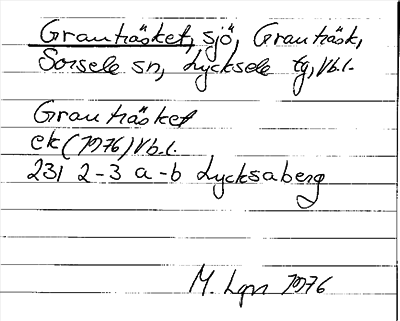 Granträsket, sjö, Granträsk,
Sorsele sn, Lycksele tg, Vb.l.
Granträsket
ek (1976) Vb.l.
231 2-3 a-b Lycksaberg
M. Lgn 1976